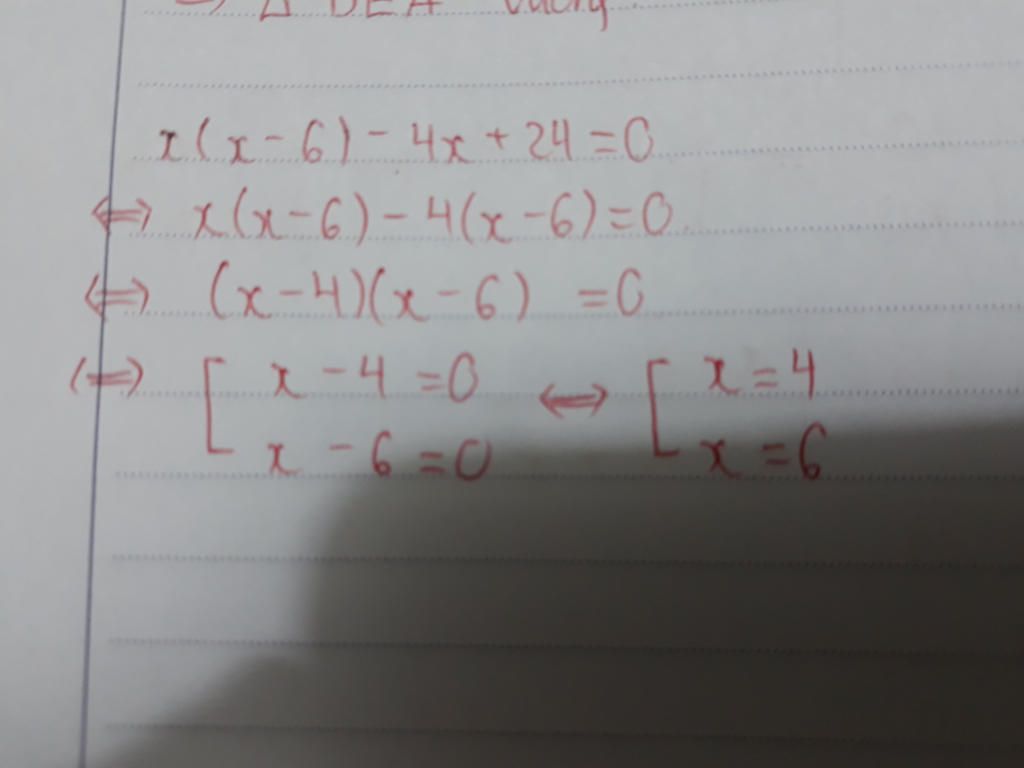 => Δ DEA vuông.
x(x - 6) - 4x + 24 = 0
<=> x(x - 6) - 4(x - 6) = 0.
<=> (x - 4)(x - 6) = 0
<=> [ x - 4 = 0 <=> [ x = 4
x - 6 = 0 x = 6